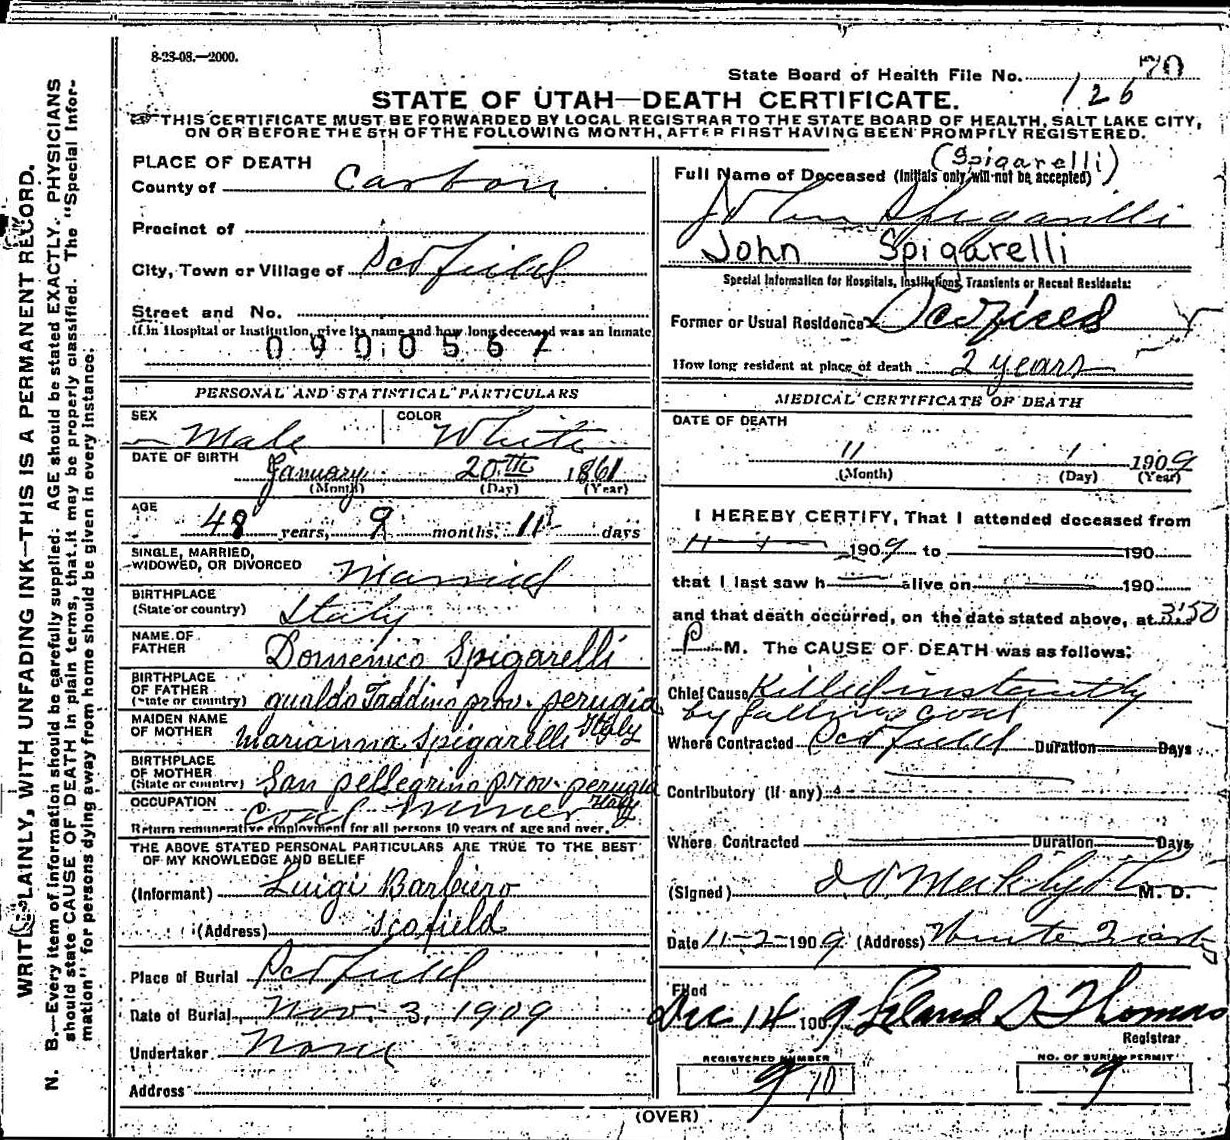 8-23-08.—2000.
70
State Board of Health File No. 126
STATE OF UTAH—DEATH CERTIFICATE.
THIS CERTIFICATE MUST BE FORWARDED BY LOCAL REGISTRAR TO THE STATE BOARD OF HEALTH, SALT LAKE CITY,
ON OR BEFORE THE 5TH OF THE FOLLOWING MONTH, AFTER FIRST HAVING BEEN PROMPTLY REGISTERED.
WRITE PLAINLY, WITH UNFADING INK—THIS IS A PERMANENT RECORD.
N. B.—Every item of information should be carefully supplied. AGE should be stated EXACTLY. PHYSICIANS
should state CAUSE OF DEATH in plain terms, that it may be properly classified. The "Special Infor-
mation" for persons dying away from home should be given in every instance.
PLACE OF DEATH
County of Carbon
Precinct of
City, Town or Village of Scofield
Street and No.
If in Hospital or Institution, give its name and how long deceased was an inmate
0900567
PERSONAL AND STATISTICAL PARTICULARS
SEX Male COLOR White
DATE OF BIRTH January 20th 1861
(Month) (Day) (Year)
AGE 48 years, 9 months, 11 days
SINGLE, MARRIED,
WIDOWED, OR DIVORCED Married
BIRTHPLACE
(State or country) Italy
NAME OF
FATHER Domenico Spigarelli
BIRTHPLACE
OF FATHER
(State or country) gualdo Taddino prov. perugia
Italy
MAIDEN NAME
OF MOTHER Marianna Spigarelli
BIRTHPLACE
OF MOTHER
(State or country) San pellegrino prov. perugia
Italy
OCCUPATION Coal Miner
Return remunerative employment for all persons 10 years of age and over.
THE ABOVE STATED PERSONAL PARTICULARS ARE TRUE TO THE BEST
OF MY KNOWLEDGE AND BELIEF
(Informant) Luigi Barbiero
(Address) Scofield
Place of Burial Scofield
Date of Burial Nov. 3, 1909
Undertaker None
Address
(Spigarelli)
Full Name of Deceased (Initials only will not be accepted)
John Spigarelli
John Spigarelli
Special Information for Hospitals, Institutions, Transients or Recent Residents:
Former or Usual Residence Scofield
How long resident at place of death 2 years
MEDICAL CERTIFICATE OF DEATH
DATE OF DEATH
11 1 1909
(Month) (Day) (Year)
I HEREBY CERTIFY, That I attended deceased from
11-1- 1909 to 190
that I last saw h alive on 190
and that death occurred, on the date stated above, at 3:50
P. M. The CAUSE OF DEATH was as follows:
Chief Cause Killed instantly
by falling coal
Where Contracted Scofield Duration Days
Contributory (If any)
Where Contracted Duration Days
(Signed) M. D.
Date 11-2-1909 (Address) Winter Quarters
Filed
Dec 14 1909 Leland S Thomas
Registrar
REGISTERED NUMBER
9 70
NO. OF BURIAL PERMIT
9
(OVER)